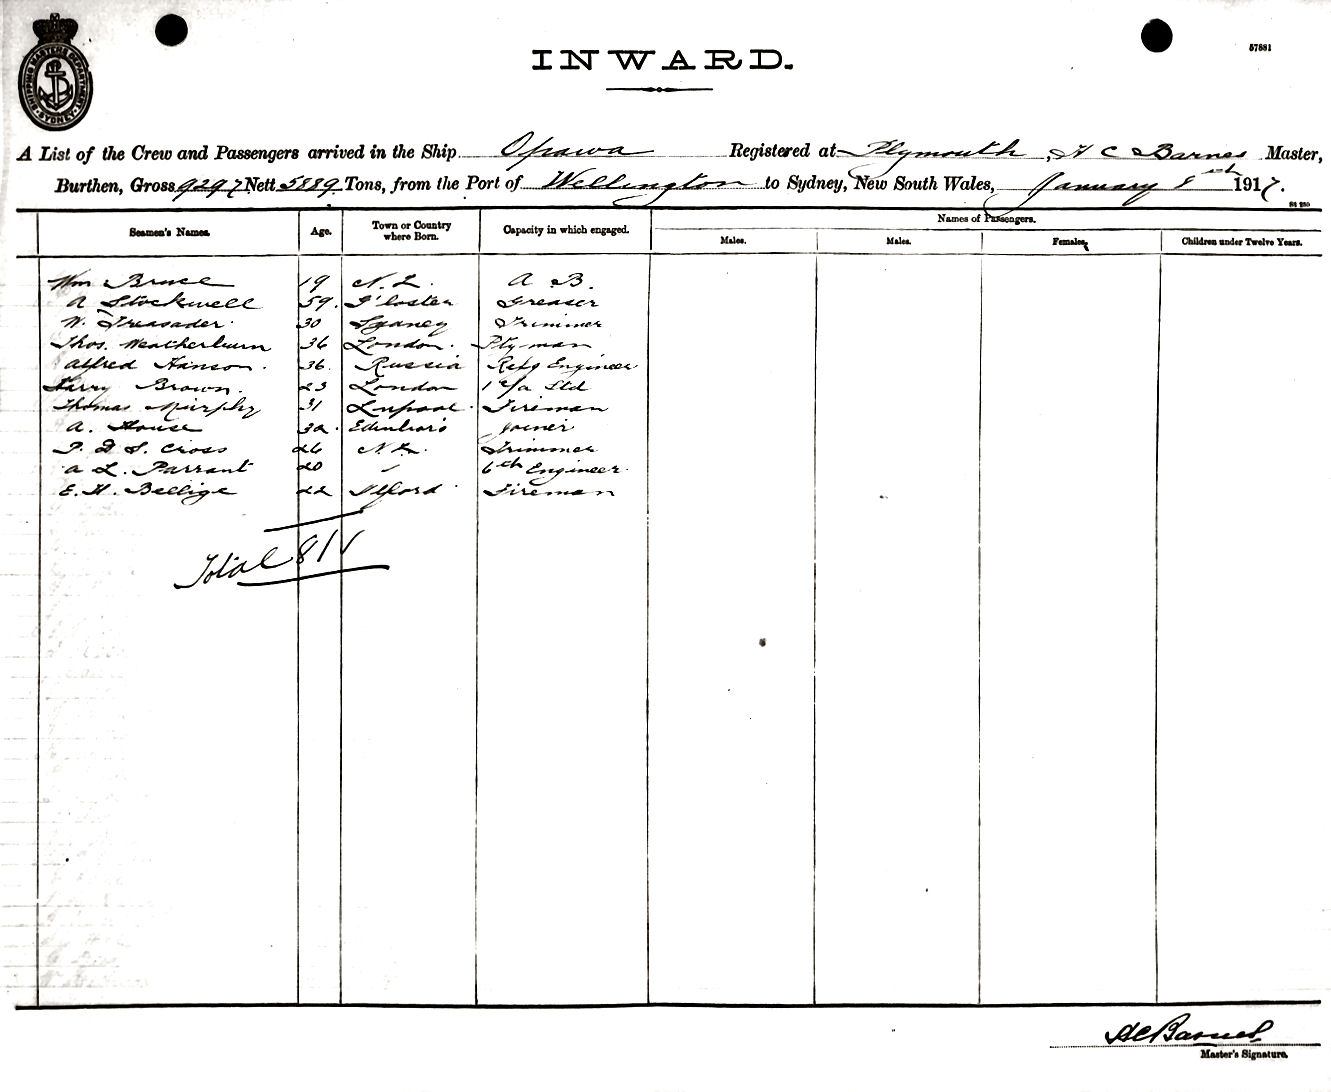 SHIPPING MASTERS DEPARTMENT SYDNEY
57881
INWARD.
A List of the Crew and Passengers arrived in the Ship Opawa Registered at Plymouth, H C Barnes Master,
Burthen, Gross 9297 Nett 5889 Tons, from the Port of Wellington to Sydney, New South Wales, January 1917.
Names of Passengers.
Seamen's Names. Age. Town or Country where Born. Capacity in which engaged. Males. Males. Females. Children under Twelve Years.
Wm Bruce 19 N. Z. A B.
A Stockwell 59. G'loster Greaser
W. Treasader. 30 Sydney Trimmer
Thos. Weatherburn 36 London.
Alfred Hanson. 36. Russia Refg Engineer
Harry Brown. 23 London
Thomas Murphy 31 Fireman
A. House Joiner
Cross 26 N. Z. Trimmer
A L. Parrant 20 " 6th Engineer
E. H. 22 Ilford Fireman
Total
HC Barnes
Master's Signature.